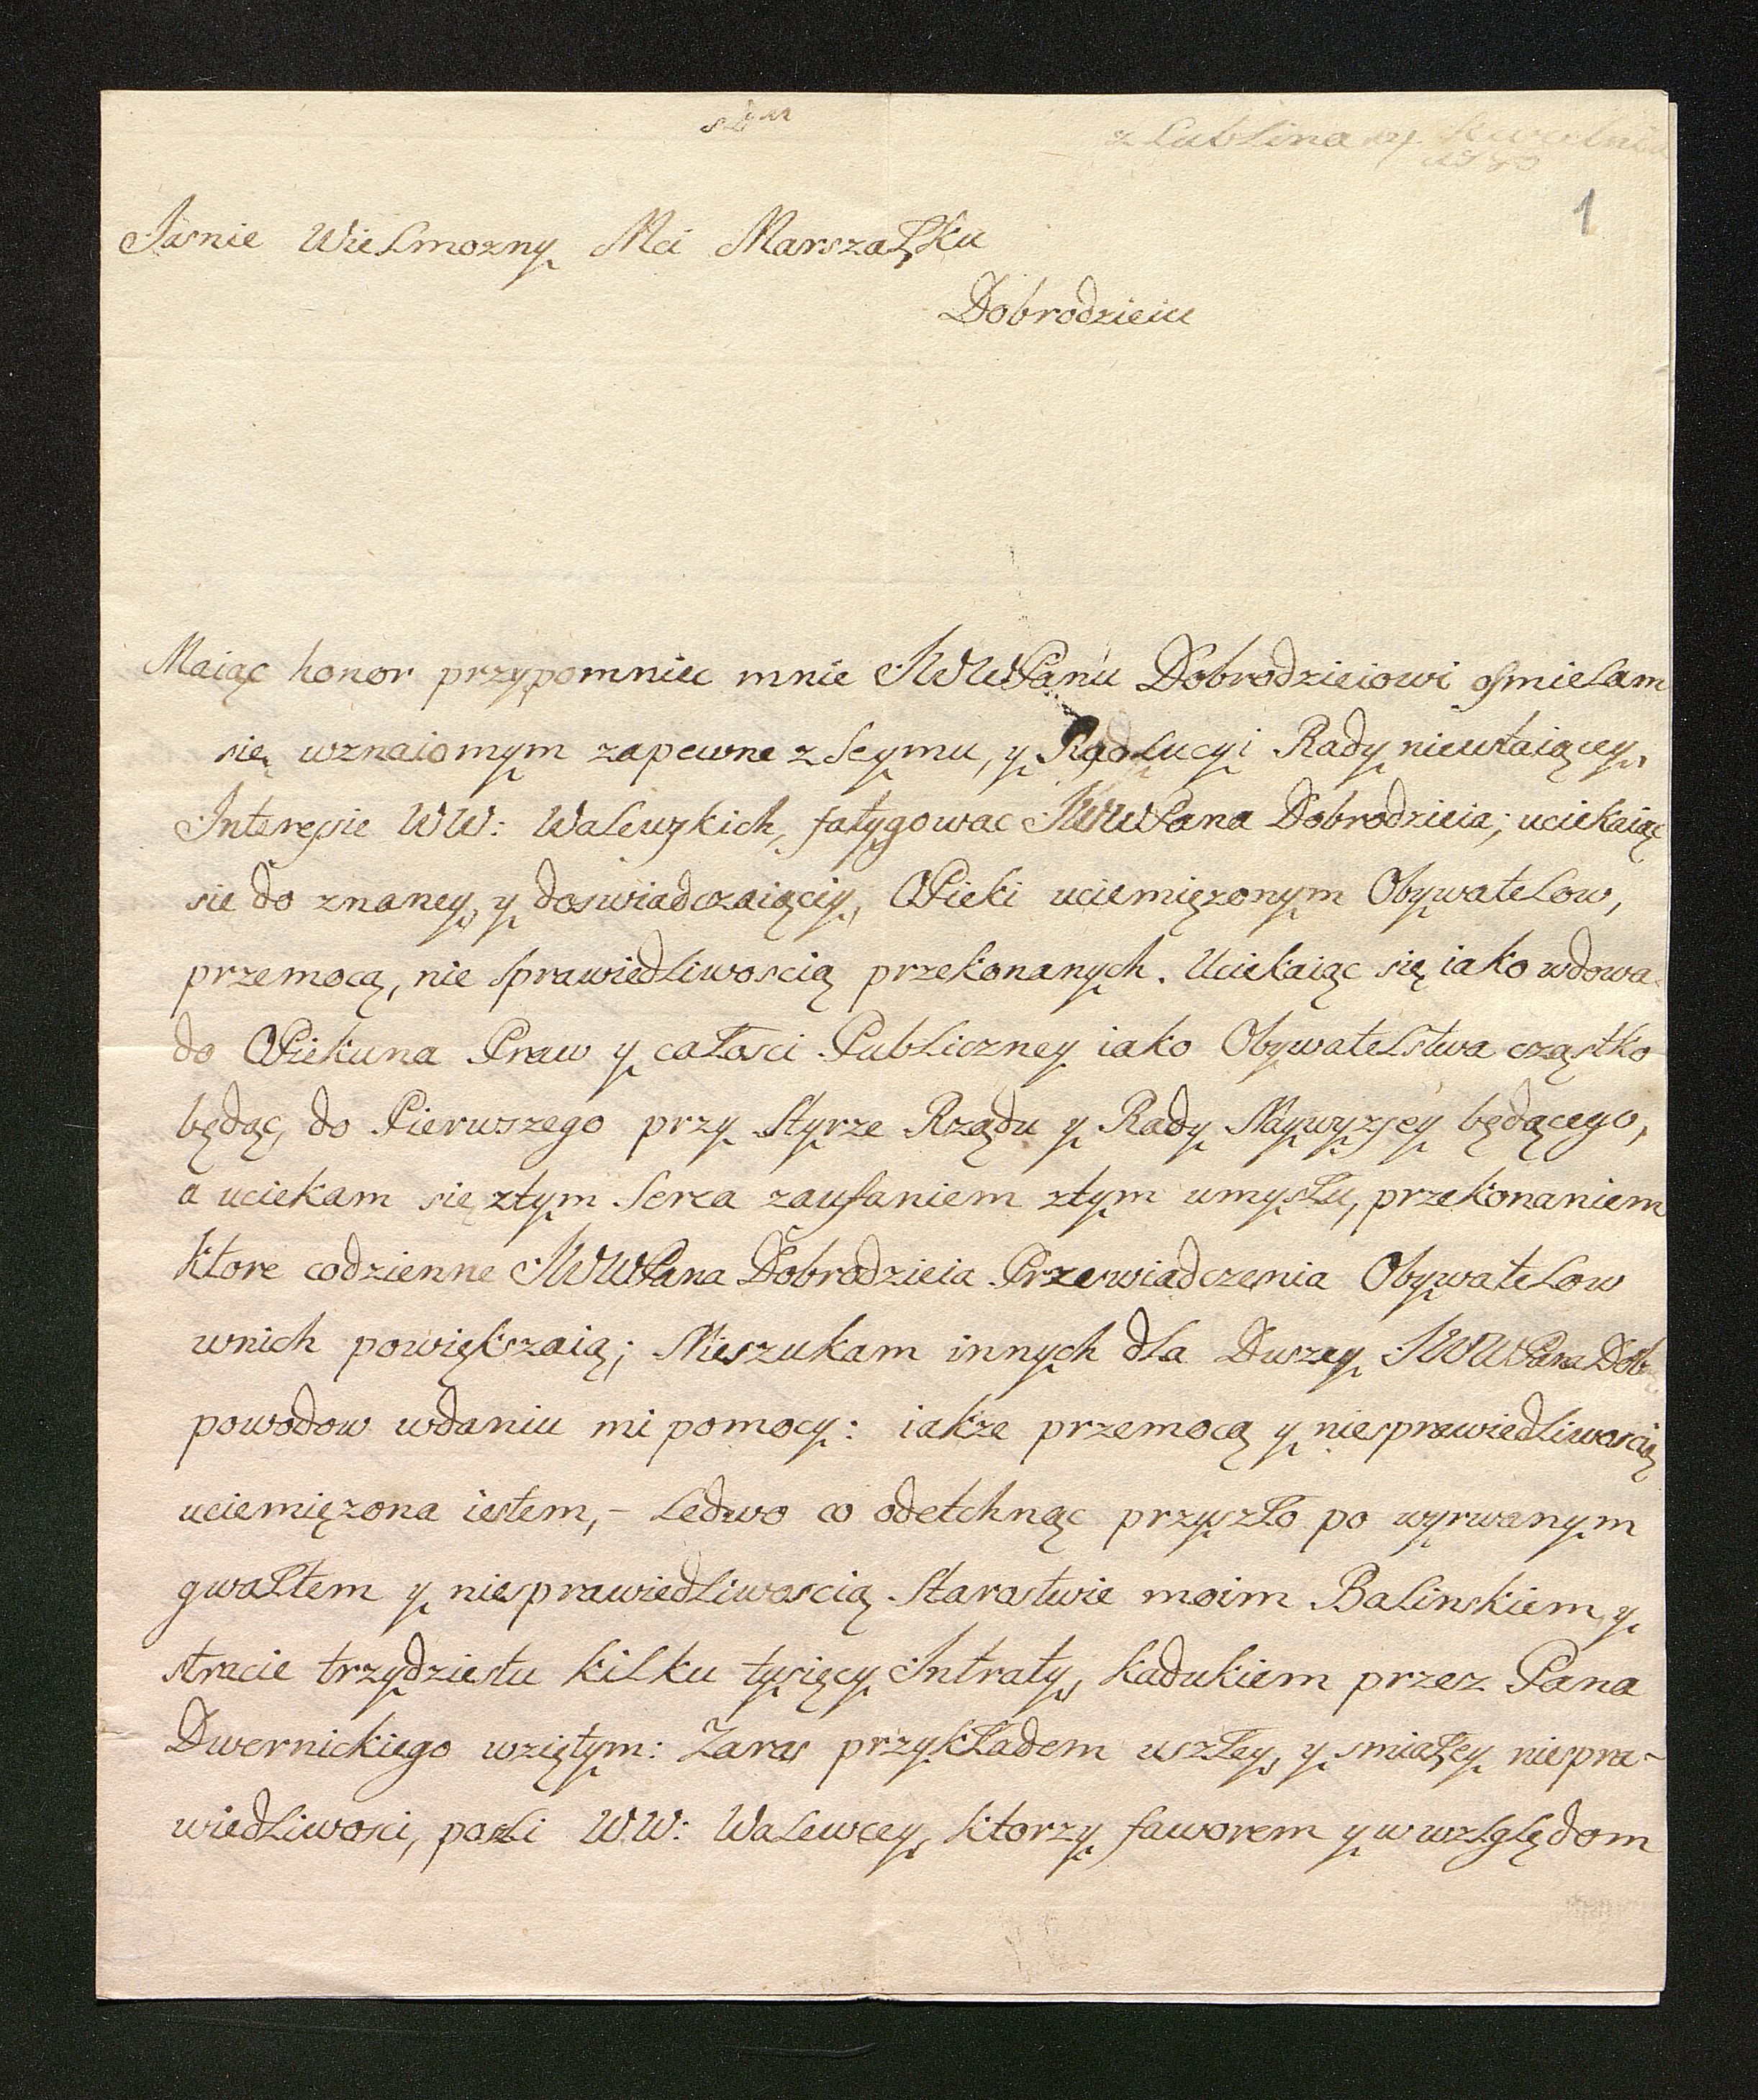 z Lublina
1
Jasnie Wielmozny Mci Marszałku
Dobrodzieiu
Maiąc honor przypomniec mnie JWWPanu Dobrodzieiowi osmielam
się wznaiomym zapewne z Seymu, y Rady nieustaiącey,
Interessie WW: Walewskich, fatygowac JWWPana Dobrodzieia; uciekaiąc
sie do znaney, y doswiadczaiący, Opieki uciemięzonym Obywatelow,
przemocą, nie sprawiedliwoscią przekonanych. Uciekaiąc się iako wdowa
do Opiekuna Praw y całosci Publiczney iako Obywatelstwa cząstko
będąc, do Pierwszego przy Styrze Rządu y Rady Naywyzsey będącego,
a uciekam się ztym Serca zaufaniem ztym umysłu, przekonaniem
ktore codzienne JWWPana Dobrodzieia Przeswiadczenia Obywatelow
wnich powiększaią; Nieszukam innych dla Duszy JWWPana Dob
powodow wdaniu mi pomocy: iakze przemocą y niesprawiedliwoscią
uciemięzona iestem,- Ledwo co odetchnąc przyszło po wyrwanym
gwałtem y niesprawiedliwoscią Starostwie moim Balinskiem, y
stracie trzydziestu kilku tysięcy Intraty, kadukiem przez Pana
Dwernickiego wziętym: Zaras przykładem uszłey, y smiałey niespra-
wiedliwosci, poszli WW: Walewcey, ktorzy faworem y wwzględom